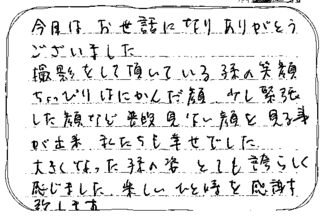 今月は お世話になり ありがとう
ございました
撮影をして頂いている 孫の笑顔
ちょっぴりはにかんだ顔 少し緊張
した顔など 普段見ない顔を 見る事
が出来 私たちも幸せでした
大きくなった孫の姿 とても誇らしく
感じました 楽しいひと時を 感謝
致します